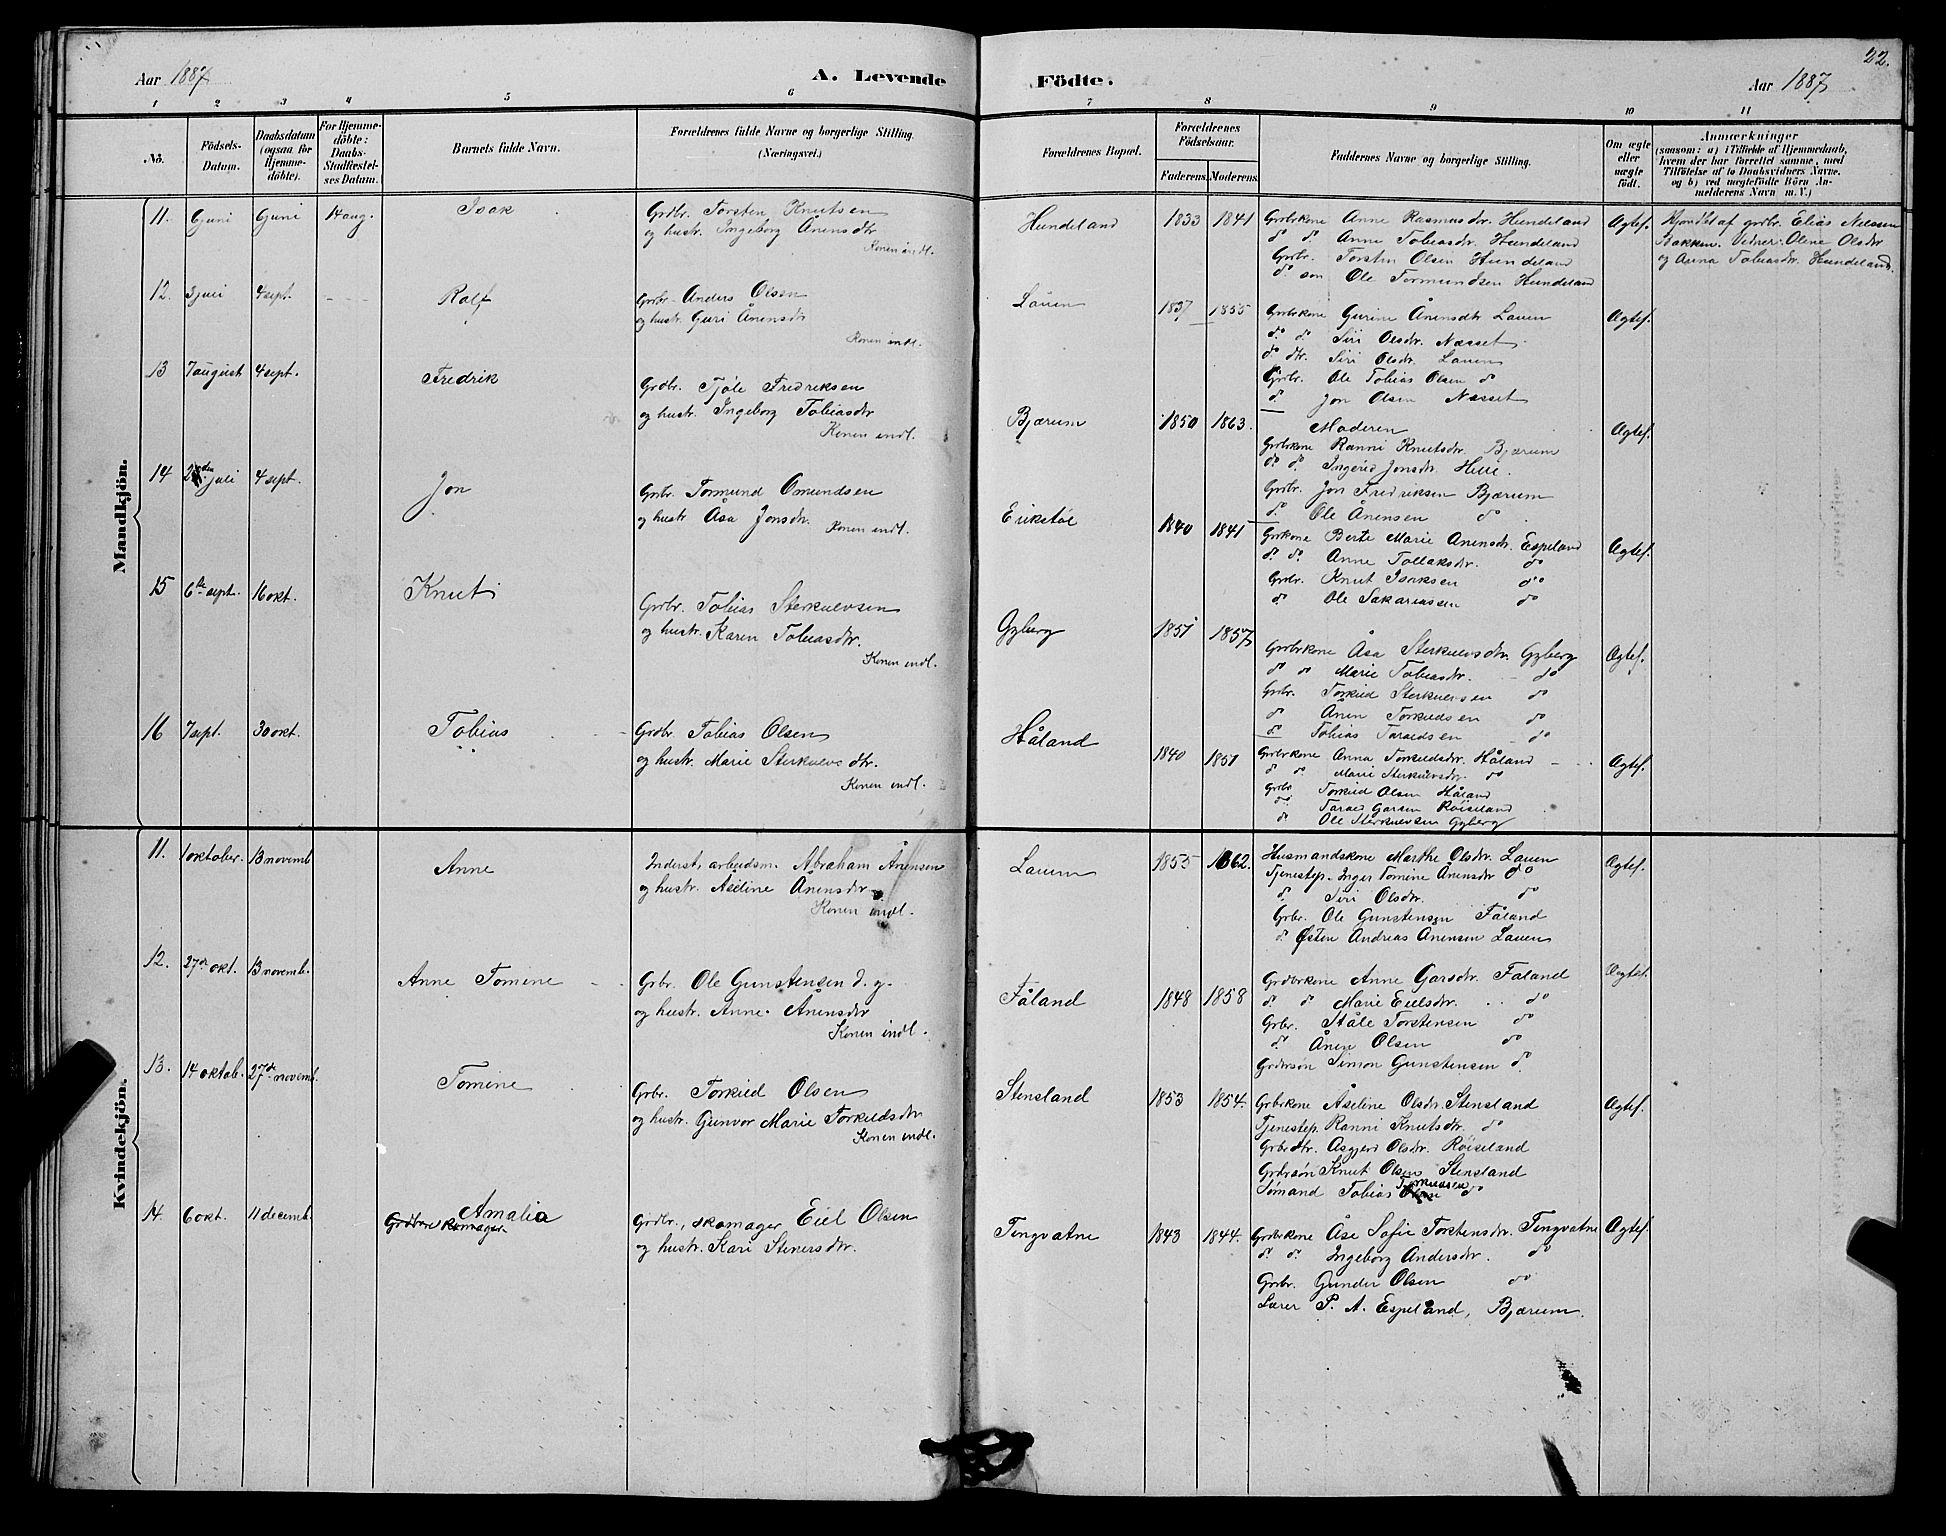 22.
Aar 1887
A. Levende
Födte.
Aar 1887
1 2 3 4 5 6 7 8 9 10 11
No.
Födsels-Datum.
Daabsdatum (ogsaa for Hjemme-döbte).
For Hjemme-döbte: Daabs-Stadfæstel-ses Datum.
Barnets fulde Navn.
Forældrenes fulde Navne og borgerlige Stilling. (Næringsvei.)
Forældrenes Bopæl.
Forældrenes Födselsaar.
Faderens. Moderens.
Faddernes Navne og borgerlige Stilling.
Om ægte eller uægte født.
Anmærkninger
(saasom: a) i Tilfælde af Hjemmedaab,
hvem der har forrettet samme, med
Tilföielse af to Daabsvidners Navne.
og b) ved uægtefödte Börn An-
melderens Navn m. V.)
Mandkjön.
11. Gjuni Gjuni 14 aug. Isak
Grdbr. Torsten Knutsen
og hustr. Ingeborg Ånensdtr
Konen indl.
Hundeland 1833 1841
Grdbrkone Anne Rasmusdtr. Hundeland
do do. Anne Tobiasdtr. Hundeland
Grdbr. Torsten Olsen Hundeland
do son Ole Tormundsen Hundeland
Ægtef.
Hjemdbt af grdbr. Elias Nilssen
Bakken. Vidner: Oline Olsdtr
og Anna Tobiasdtr. Hundeland.
12. 3 juli 4 sept. Rolf
Grdbr. Anders Olsen
og hustr. Guri Ånensdtr
Konen indl.
Lauen 1837 1855
Grdbrkone Gurine Ånensdtr Lauen
do. do. Siri Olsdtr. Næsset
do dtr. Siri Olsdtr. Lauen
Grdbr. Ole Tobias Olsen do
do. Jon Olsen Næsset
Ægtef.
13 7 august 4 sept. Fredrik
Grdbr. Tjöle Fredriksen
og hustr. Ingeborg Tobiasdtr
Konen indl.
Bjærum 1850 1863.
Moderen
Grdbrkone Ranni Knutsdtr. Bjærum
do. do. Ingerid Jonsdtr. Heie.
Grdbr. Jon Fredriksen Bjærum
do. Ole Ånensen do
Ægtef.
14 juli 4 sept. Jon
Grbr. Tormund Omundsen
og hustr Åsa Jonsdtr.
Konen indl.
Eikstöl 1840 1841
Grbrkone Berte Marie Anensdtr. Espeland
do. do. Anne Tollaksdtr. do
Grdbr. Knut Isaksen do
do. Ole Sakariassen do
Ægtef.
15 6te sept. 16 okt. Knut
Grbr. Tobias Sterkulvsen
og hustr. Karen Tobiasdtr.
Konen indl.
Gyberg 1851 1857
Grdbrkone Åsa Sterkulvsdtr. Gyberg
do do Marie Tobiasdtr. do
Grbr. Torkild Sterkulvsen do
do Ånen Torkildsen do
do. Tobias Taraldsen do
Ægtef.
16 7 sept. 30 okt. Tobias
Grdbr. Tobias Olsen
og hustr. Marie Sterkulvsdtr.
Konen indl.
Håland 1840 1851
Grdbrkone Anna Torkildsdtr. Håland
do do Marie Sterkulvsdtr. do
Grdbr Torkild Olsen Håland
do. Tarald Garsen Röiseland
do. Ole Sterkulvsen Gyberg
Ægtef.
Kvindekjön.
11. 1 oktober. 13 novemb Anne
Inderst, arbeidsm. Abraham Ånensen
og hustr. Aseline Ånensdtr
Konen indl.
Lauen 1855 1862.
Husmandskone Marthe Olsdtr. Lauen
Tjenestep. Inger Tomine Anensdtr do
do. Siri Olsdtr. do
Grbr. Ole Gunstensen Fåland
do Østen Andreas Anensen Lauen
Ægtef.
12. 27de okt. 13 novemb. Anne Tomine
Grbr. Ole Gunstensen d. y.
og hustr. Anne Ånensdtr
Konen indl.
Fåland 1848 1858
Grdbrkone Anne Garsdtr. Faland
do. do Marie Eielsdtr. do
Grbr. Ståle Torstensen do
do. Ånen Olsen do
Grdbrsön Simon Gunstensen do.
Ægtef.
13. 14 oktob. 27de novemb. Tomine
Grbr. Torkild Olsen
og hustr. Gunvor Marie Torkildsdtr
Konen indl.
Stensland 1853 1854.
Grbrkone Åseline Olsdtr. Stensland
Tjenestep. Ranni Knutsdtr. do
Grbrdtr. Asgjerd Olsdtr. Röiseland
Grdbrsön Knut Olsen Stensland
Sømand Tobias Torkildsen do
Ægtef.
14. 6 okt. 11 decemb. Amalia
Grdbr skomager
Grdbr., skomager Eiel Olsen
og hustr. Kari Stenersdtr.
Tingvatne 1843 1844.
Grdbrkone Åse Sofie Torstensdtr. Tingvatne
do. do. Ingeborg Andersdtr. do
Grbr. Gunder Olsen do
Lærer P. A. Espeland, Bjærum.
Ægtef.